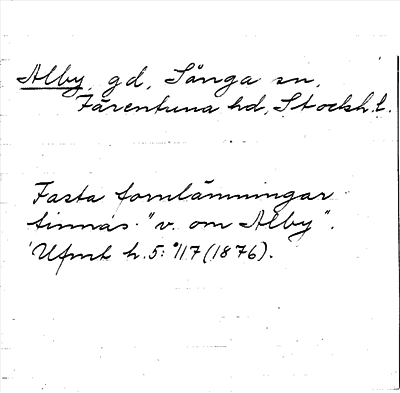 Alby, gd, Sånga sn,
Färentuna hd, Stockh. l.
Fasta fornlämningar
finnas "v. om Alby".
Ufmt h. 5: 117 (1876).